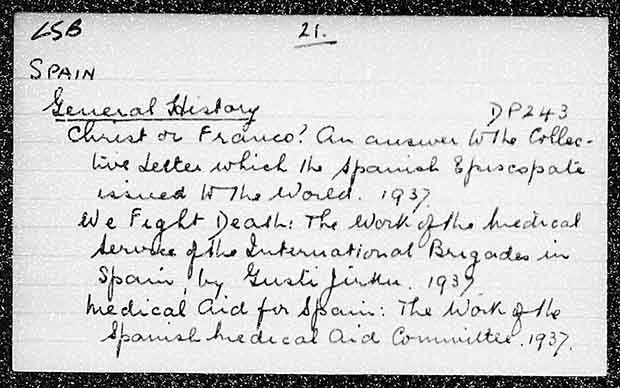 LSB 21.
SPAIN
General History DP243
Christ or Franco? An answer to the Collec-
tive Letter which the Spanish Episcopate
issued to the World. 1937
We Fight Death: The Work of the Medical
Service of the International Brigades in
Spain, by Gusti Jirku. 1937
Medical Aid for Spain: The Work of the
Spanish Medical Aid Committee. 1937.